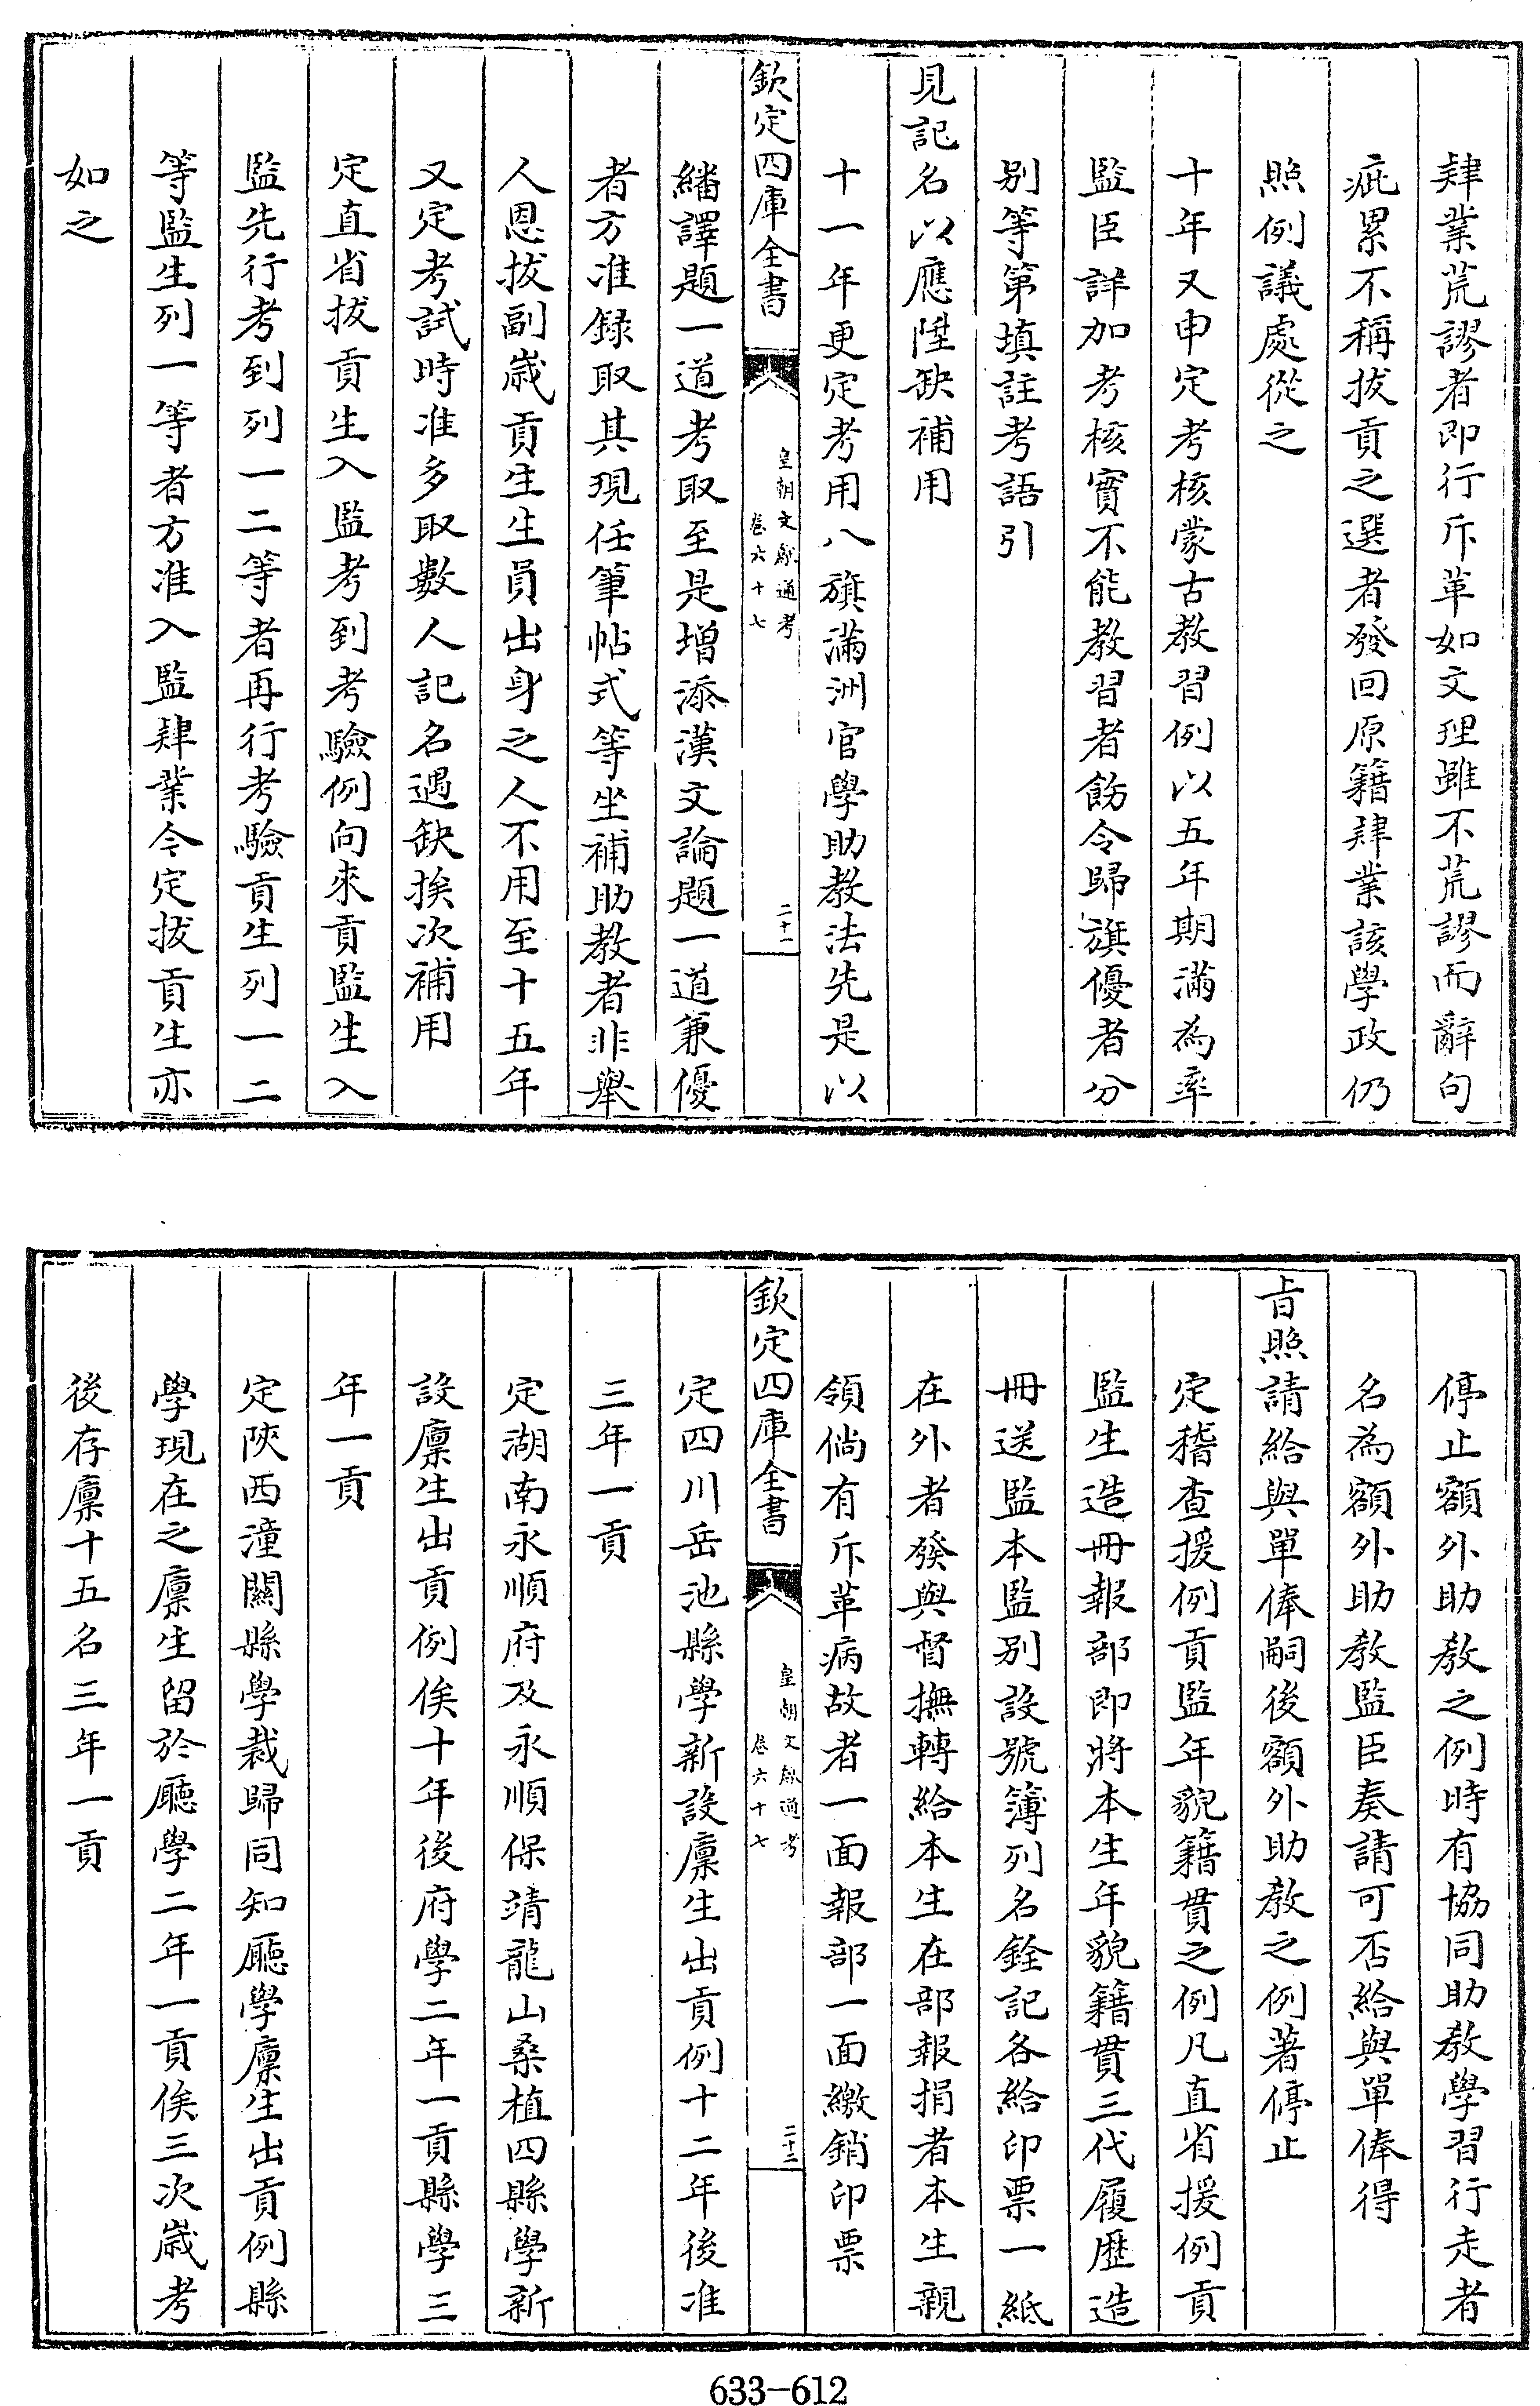 肄業荒謬者即行斥革如文理雖不荒謬而辭句
疵累不稱拔貢之選者發回原籍肄業該學政仍
照例議處從之
十年又申定考核蒙古教習例以五年期滿為率
監臣詳加考核實不能教習者飭令歸旗優者分
别等第填註考語引
見記名以應陞缺補用
十一年更定考用八旗滿洲官學助教法先是以
欽定四庫全書
皇朝文獻通考
卷六十七
二十一
繙譯題一道考取至是增添漢文論題一道兼優
者方准録取其現任筆帖式等坐補助教者非舉
人恩拔副歲貢生生員出身之人不用至十五年
又定考試時准多取數人記名遇缺挨次補用
定直省拔貢生入監考到考驗例向來貢監生入
監先行考到列一二等者再行考驗貢生列一二
等監生列一等者方准入監肄業令定拔貢生亦
如之
停止額外助教之例時有協同助教學習行走者
名為額外助教監臣奏請可否給與單俸得
旨照請給與單俸嗣後額外助教之例著停止
定稽查援例貢監年貌籍貫之例凡直省援例貢
監生造冊報部即將本生年貌籍貫三代履歷造
冊送監本監别設號簿列名銓記各給印票一紙
在外者發與督撫轉給本生在部報捐者本生親
領倘有斥革病故者一面報部一面繳銷印票
欽定四庫全書
皇朝文獻通考
卷六十七
二十二
定四川岳池縣學新設廩生出貢例十二年後准
三年一貢
定湖南永順府及永順保靖龍山桑植四縣學新
設廩生出貢例俟十年後府學二年一貢縣學三
年一貢
定陝西潼關縣學裁歸同知廳學廩生出貢例縣
學現在之廩生留於廳學二年一貢俟三次歲考
後存廩十五名三年一貢
633-612